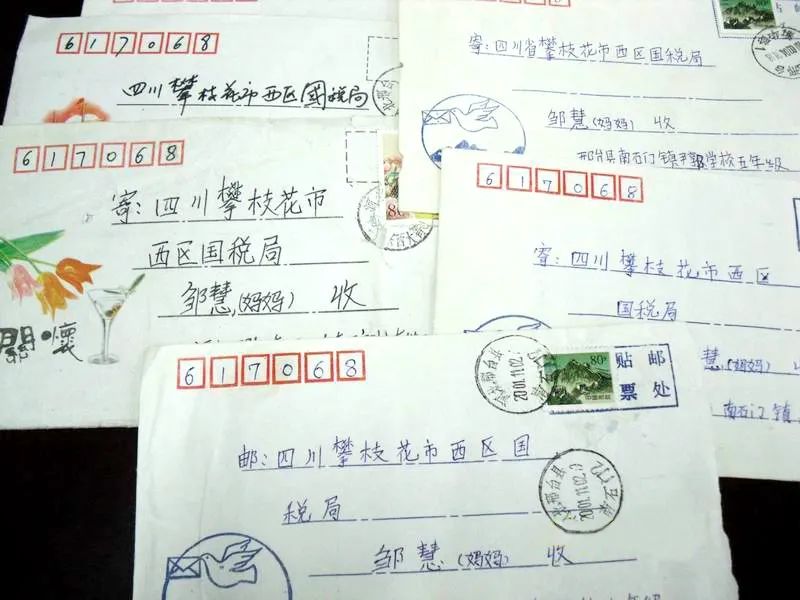 617068
四川攀枝花市西区國税局
寄:四川省攀枝花市西区国税局
邹慧(妈妈) 收
邢台县南石门镇
学校五年级
617068
寄:四川攀枝花市
西区国税局
邹慧(妈妈) 收
關懷
80
617068
寄:四川攀枝花市西区
国税局
慧(妈妈)
南石门镇
617068
80
中国邮政
贴邮
票处
2001.11.02
邮:四川攀枝花市西区国
税局
邹慧(妈妈) 收
邢台县
2001.11.02